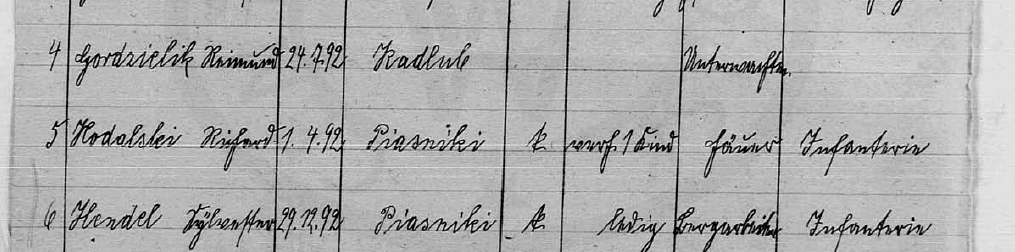 4 Gordzielik Reimund 24.7.92 Kadlub Unterwachtm.
5 Kodalski Richard 1.4.92 Piasniki k. verh. 1 Kind Häuer Infanterie
6 Hendel Sylvester 29.12.92 Piasniki k. ledig Bergarbeiter Infanterie